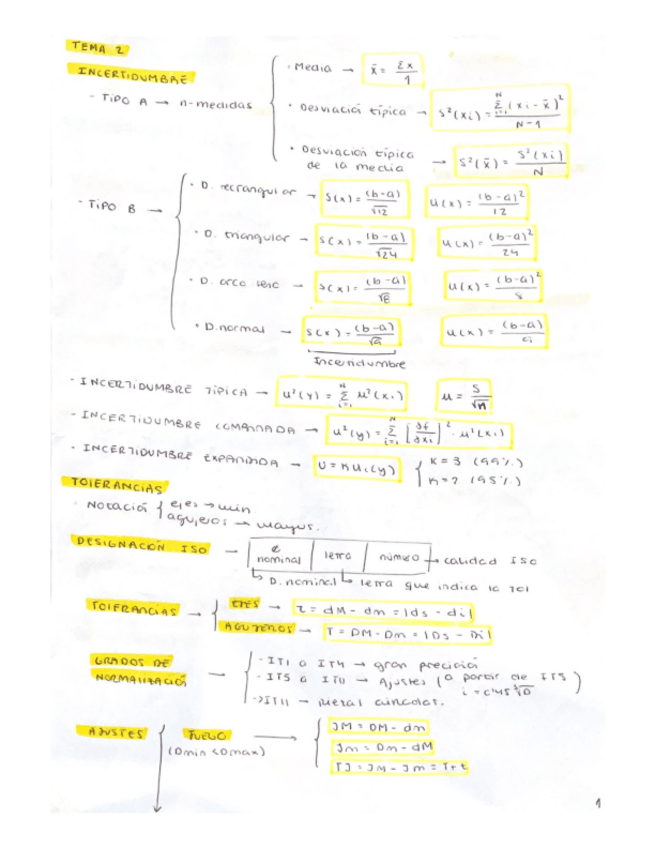 TEMA 2
INCERTIDUMBRE
- TIPO A → n-medidas
· Media → x̄ = Σx / 1
· Desviación típica → s²(xi) = Σ(i=1, N) (xi - x̄)² / N-1
· Desviación típica de la media → s²(x̄) = s²(xi) / N
- TIPO B →
· D. rectangular → s(x) = (b-a) / √12   u(x) = (b-a)² / 12
· D. triangular → s(x) = (b-a) / √24   u(x) = (b-a)² / 24
· D. arco seno → s(x) = (b-a) / √8   u(x) = (b-a)² / 8
· D. normal → s(x) = (b-a)   u(x) = (b-a)
Incertidumbre
- INCERTIDUMBRE TÍPICA → u²(y) = Σ(i=1, N) u²(xi)   u = s / √n
- INCERTIDUMBRE COMBINADA → u²(y) = Σ(i=1, N) [∂f / ∂xi]² · u²(xi)
· INCERTIDUMBRE EXPANDIDA → U = K u(y)   K = 3 (99%)
K = 2 (95%)
TOLERANCIAS
· Notación { ejes → min.
agujeros → mayus.
DESIGNACIÓN ISO → nominal | letra | número → calidad ISO
↳ D. nominal ↳ letra que indica la tol
TOLERANCIAS → EJES → t = dM - dm = |ds - di|
AGUJEROS → T = DM - Dm = |Ds - Di|
GRADOS DE NORMALIZACIÓ →
- IT1 a IT4 → gran precisió
- IT5 a IT11 → Ajustes (a partir de IT5)
i = 0'45 ∛D
> IT11 →
AJUSTES   JUEGO → JM = DM - dm
(Dmin < Dmax)   Jm = Dm - dM
TJ = JM - Jm = T + t
1